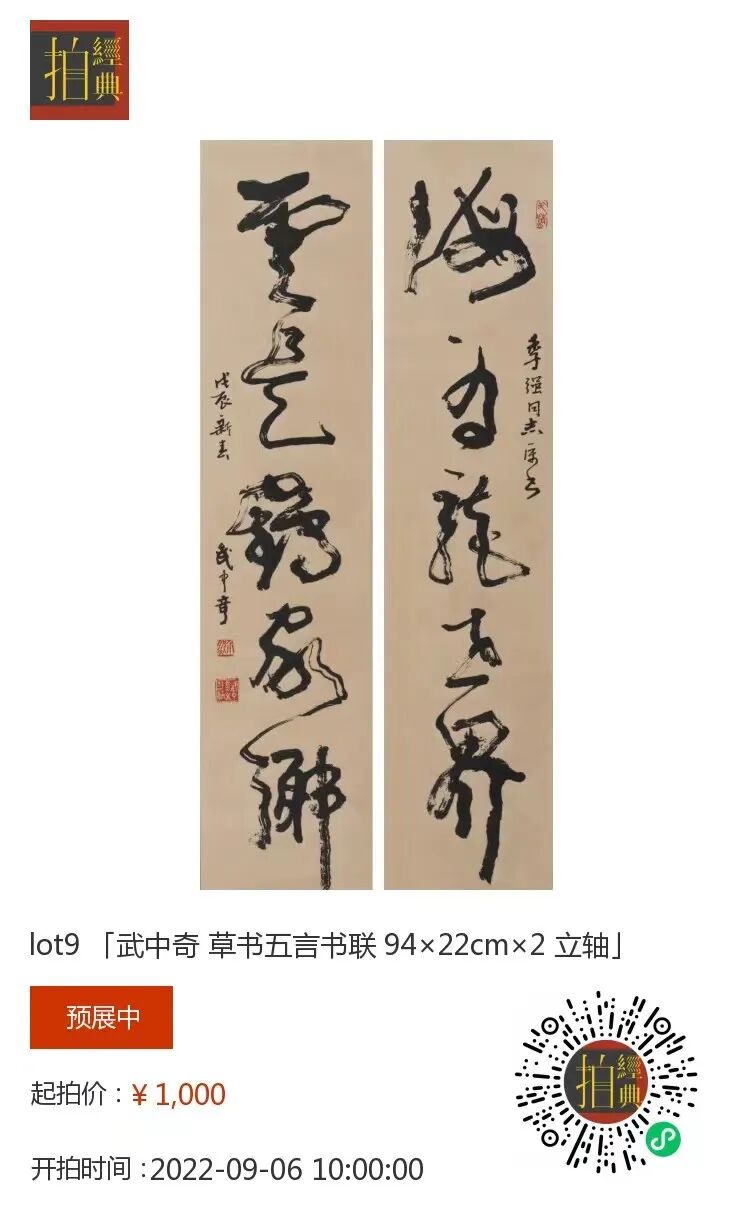 拍經典
海為龍世界
季强同志屬书
雲是鶴家鄉
戊辰新春
武中奇
lot9 「武中奇 草书五言书联 94×22cm×2 立轴」
预展中
起拍价：¥ 1,000
开拍时间：2022-09-06 10:00:00
拍經典